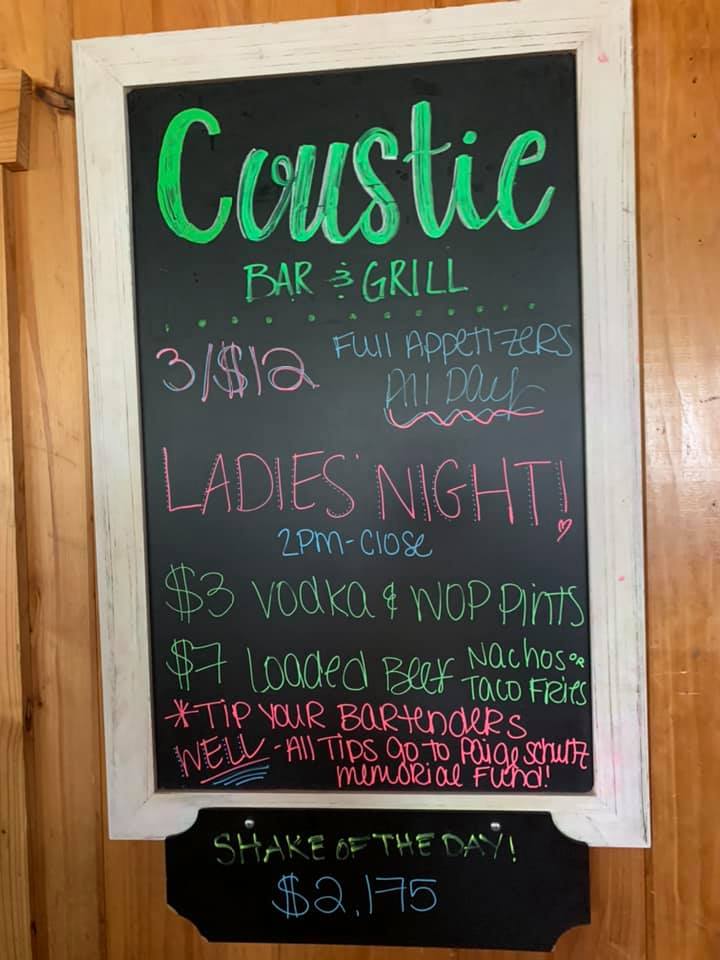 Coustic
BAR & GRILL
3/$12 Full Appetizers
All Day
LADIES' NIGHT!
2pm-Close
$3 Vodka & WOP Pints
$7 Loaded Beef Nachos OR
Taco Fries
*TIP YOUR BARTENDERS
WELL - All Tips go to Paige Schultz
memorial Fund!
SHAKE OF THE DAY!
$2,175